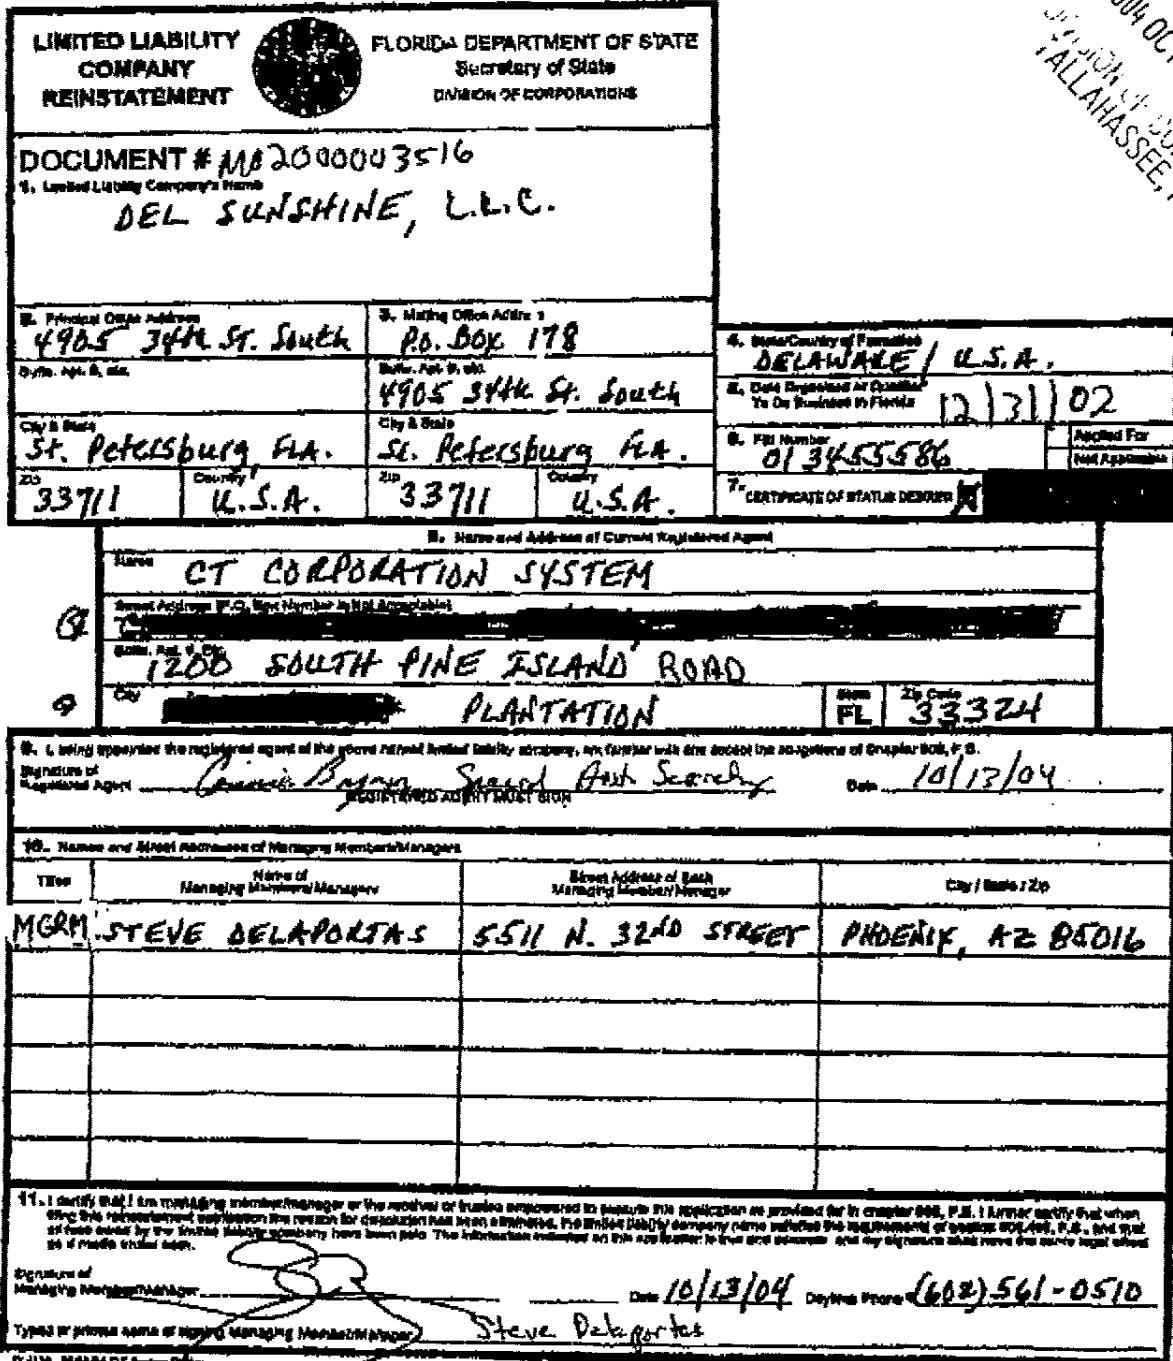 LIMITED LIABILITY
COMPANY
REINSTATEMENT
FLORIDA DEPARTMENT OF STATE
Secretary of State
DIVISION OF CORPORATIONS
2004 OCT
DIVISION OF
TALLAHASSEE,
DOCUMENT # M02000003516
1. Limited Liability Company's Name
DEL SUNSHINE, L.L.C.
2. Principal Office Address
4905 34th St. South
Suite, Apt. #, etc.
City & State
St. Petersburg, FLA.
Zip
33711
Country
U.S.A.
3. Mailing Office Address
P.O. Box 178
Suite, Apt. #, etc.
4905 34th St. South
City & State
St. Petersburg FLA.
Zip
33711
Country
U.S.A.
4. State/Country of Formation
DELAWARE / U.S.A.
5. Date Organized or Qualified
To Do Business in Florida
12/31/02
6. FEI Number
013455586
Applied For
Not Applicable
7. CERTIFICATE OF STATUS DESIRED X
8. Name and Address of Current Registered Agent
Name
CT CORPORATION SYSTEM
Street Address (P.O. Box Number is Not Acceptable)
Suite, Apt. #, Etc.
1200 SOUTH PINE ISLAND ROAD
City
PLANTATION
State
FL
Zip Code
33324
9. I, being appointed the registered agent of the above named limited liability company, am familiar with and accept the obligations of Chapter 608, F.S.
Signature of
Registered Agent
REGISTERED AGENT MUST SIGN
Date 10/13/04
10. Names and Street Addresses of Managing Members/Managers
Titles
Name of
Managing Members/Managers
Street Address of Each
Managing Member/Manager
City / State / Zip
MGRM
STEVE DELAPORTAS
5511 N. 32ND STREET
PHOENIX, AZ 85016
11. I certify that I am managing member/manager or the receiver or trustee empowered to execute this application as provided for in chapter 608, F.S. I further certify that when
filing this reinstatement application the reason for dissolution has been eliminated, the limited liability company name satisfies the requirements of section 608.406, F.S., and that
all fees owed by the limited liability company have been paid. The information indicated on this application is true and accurate and my signature shall have the same legal effect
as if made under oath.
Signature of
Managing Member/Manager
Date 10/13/04
Daytime Phone # (602) 561-0510
Typed or printed name of signing Managing Member/Manager
Steve Delaportas